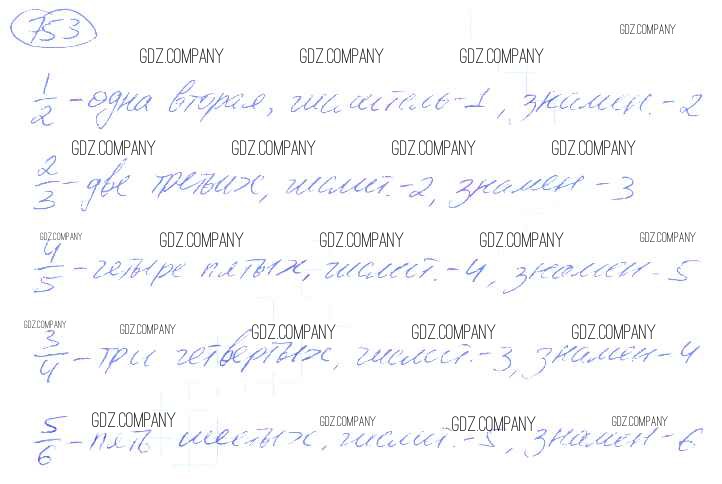 753
GDZ.COMPANY
GDZ.COMPANY GDZ.COMPANY GDZ.COMPANY
1/2 - одна вторая, числитель - 1, знамен. - 2
GDZ.COMPANY GDZ.COMPANY GDZ.COMPANY GDZ.COMPANY
2/3 - две третьих, числит. - 2, знамен - 3
GDZ.COMPANY GDZ.COMPANY GDZ.COMPANY GDZ.COMPANY GDZ.COMPANY
4/5 - четыре пятых, числит. - 4, знамен - 5
GDZ.COMPANY GDZ.COMPANY GDZ.COMPANY GDZ.COMPANY GDZ.COMPANY
3/4 - три четвертых, числит. - 3, знамен - 4
GDZ.COMPANY GDZ.COMPANY GDZ.COMPANY GDZ.COMPANY
5/6 - пять шестых, числит. - 5, знамен - 6